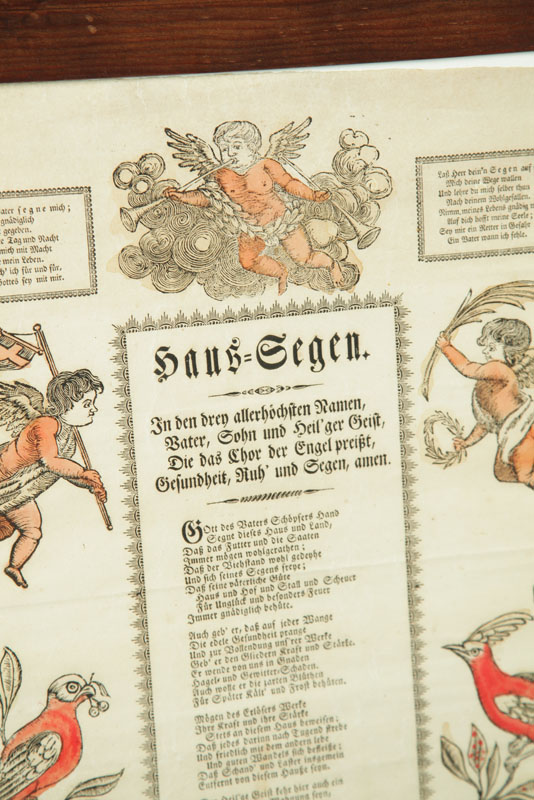 ater segne mich;
gnädiglich
gegeben.
e Tag und Nacht
mich mit Macht
mein Leben.
h' ich für und für,
ottes sey mit mir.
Laß Herr dein'n Segen auf
Mich deine Wege wallen
Und lehre du mich selber thun
Nach deinem Wohlgefallen.
Nimm meines Lebens gnädig
Auf dich hofft meine Seele;
Sey mir ein Retter in Gefahr
Ein Vater wann ich fehle.
Haus=Segen.
In den drey allerhöchsten Namen,
Vater, Sohn und Heil'ger Geist,
Die das Chor der Engel preißt,
Gesundheit, Ruh' und Segen, amen.
Gott des Vaters Schöpfers Hand
Segne dieses Haus und Land,
Daß das Futter und die Saaten
Immer mögen wohlgerathen;
Daß der Viehstand wohl gedeyhe
Und sich seines Segens freye;
Daß seine väterliche Güte
Haus und Hof und Stall und Scheuer
Für Unglück und besonders Feuer
Immer gnädiglich behüte.
Auch geb' er, daß auf jeder Wange
Die edele Gesundheit prange
Und zur Vollendung uns'rer Werke
Geb' er den Gliedern Kraft und Stärke.
Er wende von uns in Gnaden
Hagel= und Gewitter=Schaden.
Auch wolle er die zarten Blüthen
Für Später Kält' und Frost behüten.
Mögen des Erlösers Werke
Ihre Kraft und ihre Stärke
Stets an diesem Haus beweisen;
Daß jedes darinn nach Tugend strebe
Und friedlich mit dem andern lebe
Und guten Wandels sich befleiße;
Daß Schand' und Laster insgemein
Entfernt von diesem Hauße seyn.
Heil'ge Geist kehr hier auch ein
Wohnung seyn,